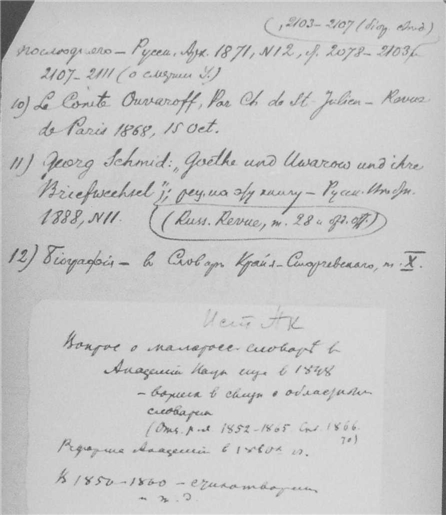 , 2103–2107 (биогр. свѣд.)
последнего – Русск. Арх. 1871, N12, с. 2078–2103 и
2107–2111 (о смерти У.)
10) Le Comte Ouvaroff, Par Ch. de St-Julien – Revue
de Paris 1868, 15 Oct.
11) Georg Schmid: „Goethe und Uwarow und ihre
Briefwechsel"; рец. на эту книгу – Русск.
1888, N11. (Russ. Revue, т. 28
12) Біографія – в Словарѣ Крайя–Старчевского, т. X.
Ист АК
Вопрос о малоросс. словарѣ в
Академіи Наук еще в 1848
– в связи с областным
словарем
(Отч. 1852–1865 Спб. 1866.
Реформа Академіи в 1860х гг.
К 1850–1860 –
и т. д.